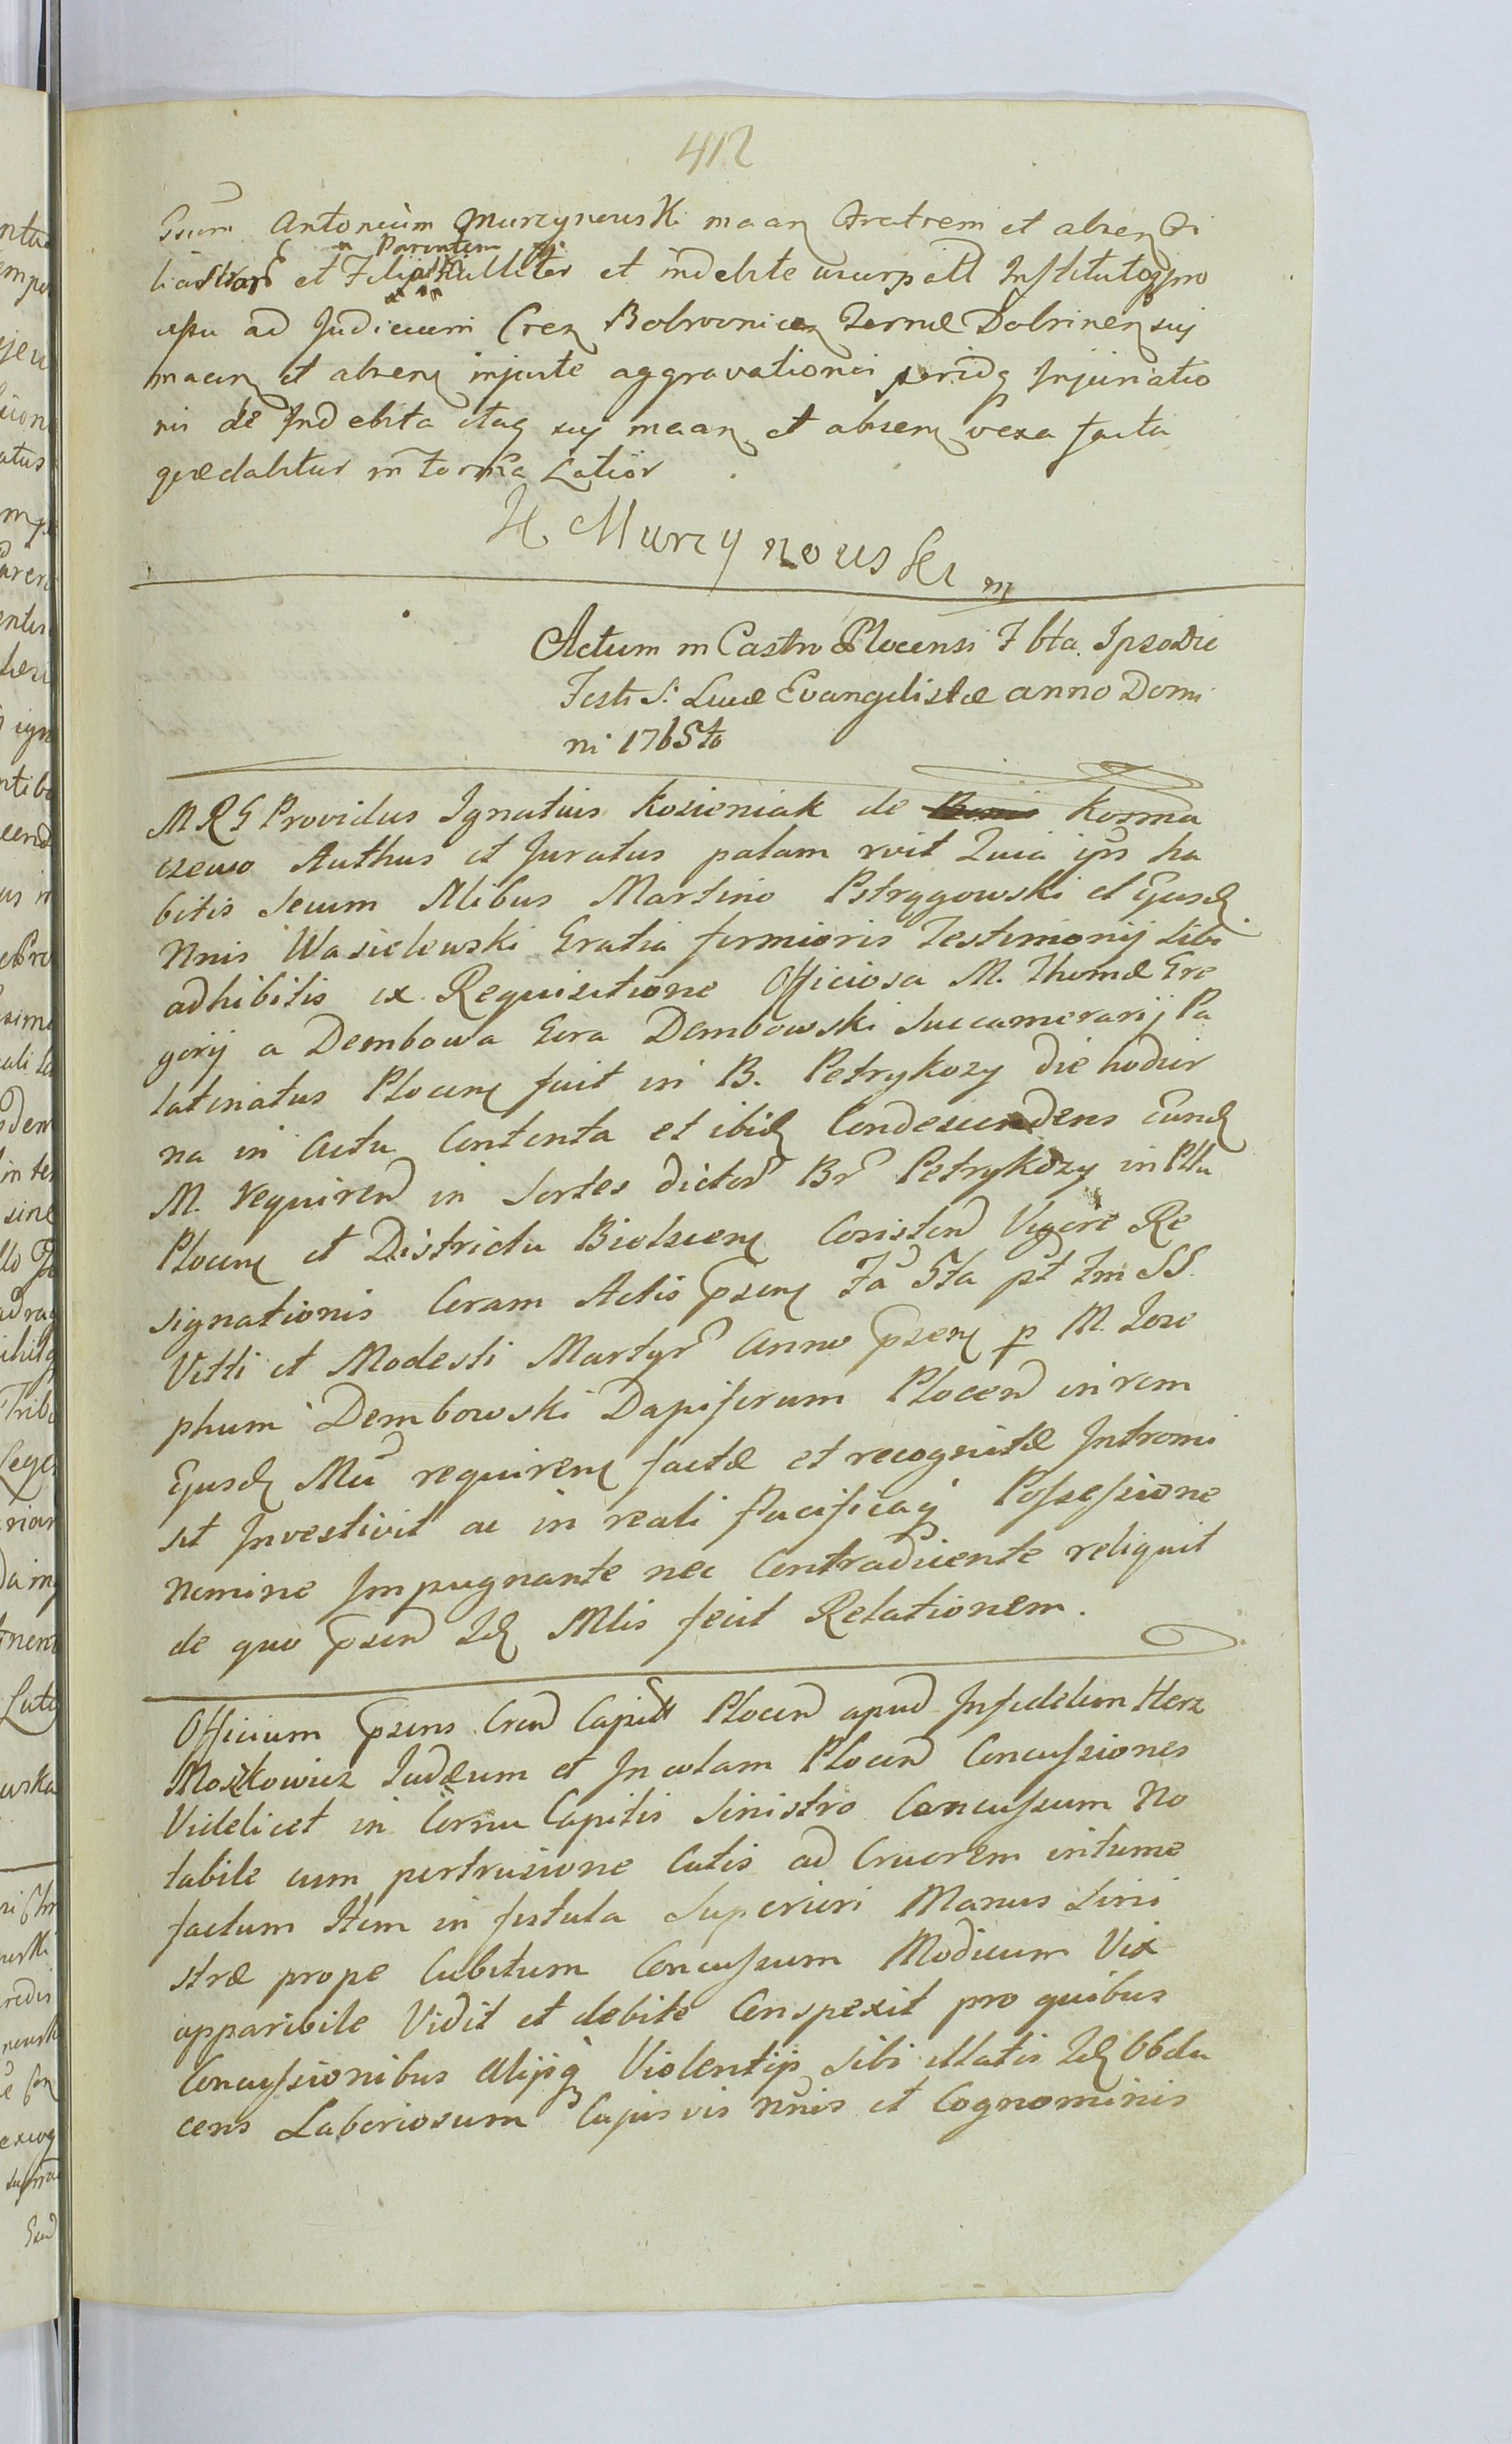 412
Ssum Antonium Murzynouski maan Fratrem et absen Fi
liastram et Filiastri Parentem Nulliter et indebite usurpatt Institutoq pro
usu ad Judicium Cren Bobrovnicen Terræ Dobrinen suj
maan et absen injuste aggravationis peridq Injuriatio
nis de Indebita itaq suj maan et absen vexa facta
quædabitur in forma Latior
H Murzynouski m
Actum in Castro Plocensi F bta. Ipso Die
Festi S: Lucæ Evangelistæ anno Domi
ni 1765to
M R G Providus Ignatius Kozieniak de Kosma
czewo Authus et Juratus palam rvit Quia ips ha
bitis secum Nlibus Martino Pstrągowski et Ejusd
Nnis Wasielewski Gratia firmioris Testimonij sibi
adhibitis ex Requisitione Officiosa M. Thomæ Gre
gorij a Dembowa Gora Dembowski Succamerarij Pa
latinatus Plocen fuit in B. Petrykozy die hodier
na in Actu Contenta et ibid Condescendens Eund
M. requiren in Sortes dictor Br Petrykozy in Pttu
Plocen et Districtu Bielscen Consisten Vigore Re
signationis Coram Actis psen Fa 5ta pt Fm SS.
Vitti et Modesti Martyr Anno psen p M. Jose
phum Dembowski Dapiferum Plocen in rem
Ejusd Mci requiren factæ et recognitæ Intromi
sit Investivit ac in reali pacificaq Possessione
nemine Impugnante nec Contradicente reliquit
de quo psen Id Mlis fecit Relationem.
Officium psens Cren Capitt Plocen apud Infidelem Herz
Moszkowicz Judæum et Incolam Plocen Concussiones
Videlicet in Cornu Capitis Sinistro Concussum No
tabile cum pertrusione Cutis ad Cruorem intume
factum Item in fistula Superiori Manus Sini
stræ prope Cubitum Concussum Modicum Vix
apparibile Vidit et debite Conspexit pro quibus
Concussionibus Alijsq Violentijs sibi illatis Id Obdu
cens Laboriosum Cujusvis Nnis et Cognominis